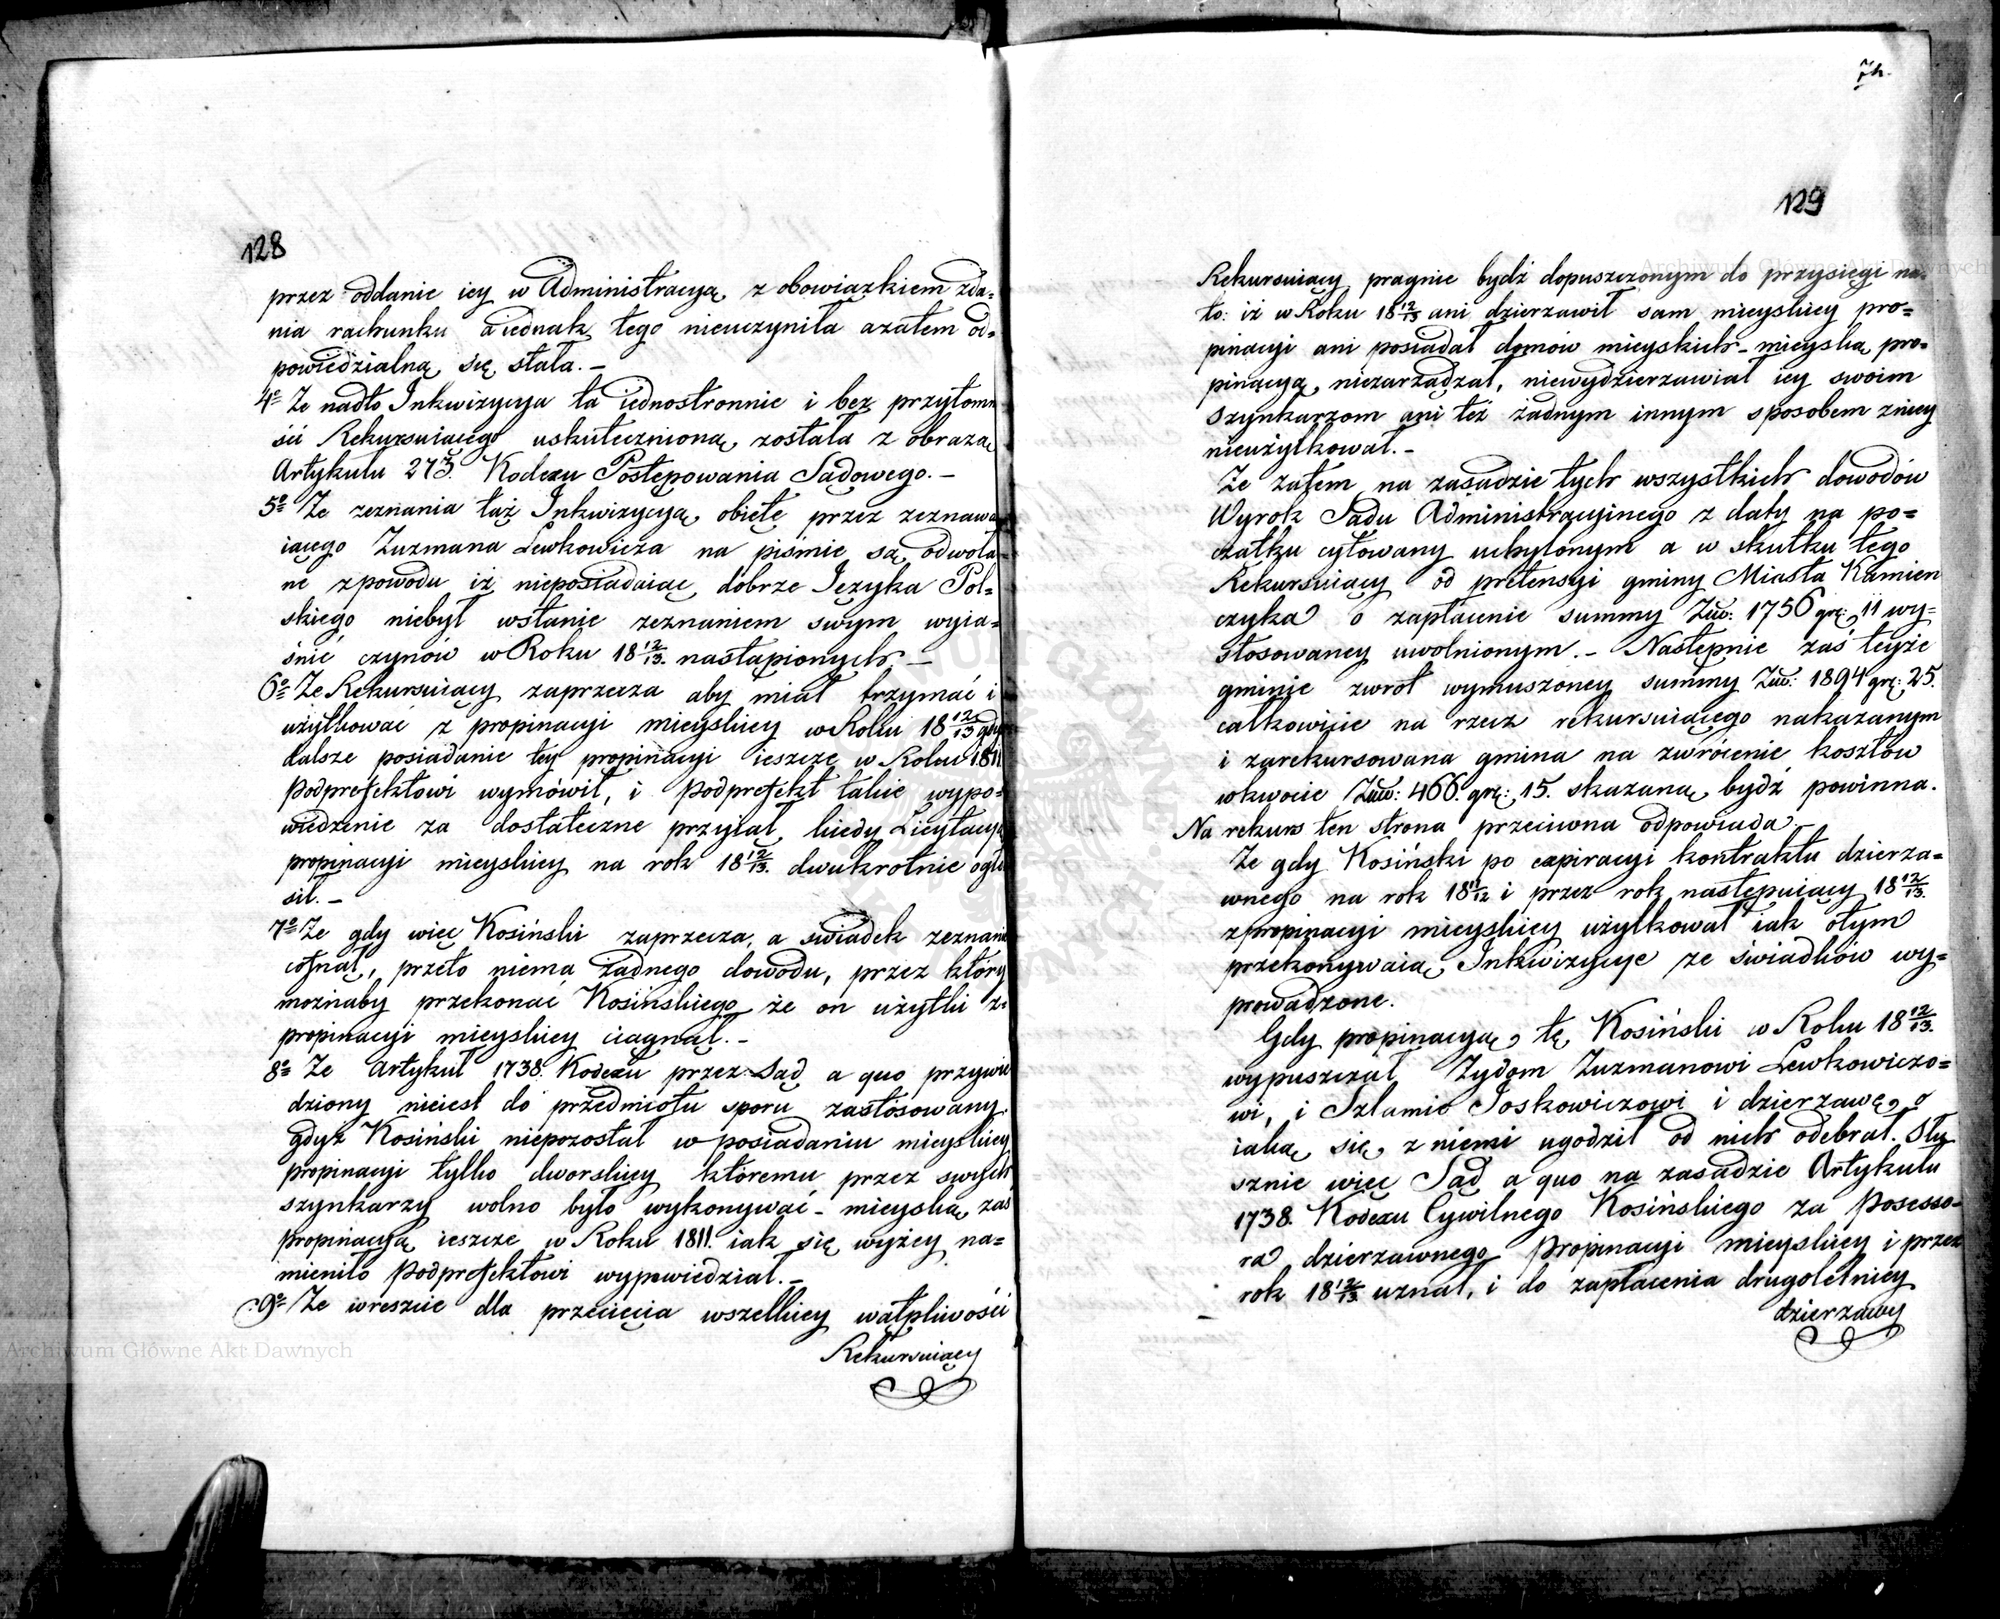 128
przez oddanie iey w Administracyą z obowiązkiem zda=
nia rachunku a iednak tego nieuczyniła azatem od=
powiedzialną się stała. –
4o Że nadto Inkwizycya ta iednostronnie i bez przytomn
ści Rekursuiącego uskutecznioną została z obrazą
Artykułu 273. Kodexu Postępowania Sądowego. –
5o Że zeznania tąż Inkwizycyą obięte przez zeznawa
iącego Zuzmana Lewkowicza na piśmie są odwoła=
ne zpowodu iż nieposiadaiąc dobrze Ięzyka Pol=
skiego niebył wstanie zeznaniem swym wyia=
śnić czynów w Roku 18 12/13. nastąpionych. –
6o Że Rekursuiący zaprzecza aby miał trzymać i
użytkować z propinacyi mieyskiey w Roku 18 12/13 gdy
dalsze posiadanie tey propinacyi ieszcze w Roku 1811
Podprefektowi wymówił, i Podprefekt takie wypo=
wiedzenie za dostateczne przyiął, kiedy Licytacyą
propinacyi mieyskiey na rok 18 12/13. dwukrotnie ogło
sił. –
7o Że gdy więc Kosiński zaprzecza, a świadek zeznanie
cofnął, przeto niema żadnego dowodu, przez który
możnaby przekonać Kosińskiego że on użytki z=
propinacyi mieyskiey ciągnął. –
8o Że Artykuł 1738. Kodexu przez Sąd a quo przywie
dziony nieiest do przedmiotu sporu zastosowany.
gdyż Kosiński niepozostał w posiadaniu mieyskiey
propinacyi tylko dworskiey któremu przez swych
szynkarzy wolno było wykonywać – mieyską zaś
propinacyą ieszcze w Roku 1811. iak się wyżey na=
mieniło Podprefektowi wypowiedział. –
9o Że wreszcie dla przecięcia wszelkiey wątpliwości
Rekursuiący
129
Rekursuiący pragnie bydź dopuszczonym do przysięgi na
to: iż w Roku 18 12/13 ani dzierzawił sam mieyskiey pro=
pinacyi ani posiadał domów mieyskich – mieyską pro=
pinacyą niezarządzał, niewydzierzawiał iey swoim
szynkarzom ani też żadnym innym sposobem zniey
nieużytkował. –
Że zatem na zasadzie tych wszystkich dowodów
Wyrok Sądu Administracyinego z daty na po=
czątku cytowany uchylonym a w skutku tego
Rekursuiący od pretensyi gminy Miasta Kamień
czyka o zapłacenie summy Złw: 1756 gr: 11 wy=
stosowaney uwolnionym. – Następnie zaś teyże
gminie zwrót wymuszoney summy Złw: 1894 gr: 25.
całkowicie na rzecz rekursuiącego nakazanym
i zarekursowana gmina na zwrócenie kosztów
wkwocie Złw: 466. gr: 15. skazaną bydź powinna.
Na rekurs ten strona przeciwna odpowiada. –
Że gdy Kosiński po expiracyi kontraktu dzierza=
wnego na rok 18 11/12 i przez rok następuiący 18 12/13.
zpropinacyi mieyskiey użytkował iak otym
przekonywaią Inkwizycye ze świadków wy=
prowadzone.
Gdy propinacyą tę Kosiński w Roku 18 12/13.
wypuszczał Żydom Zuzmanowi Lewkowiczo=
wi, i Szlamie Joskowiczowi i dzierzawę o
iaką się z niemi ugodził od nich odebrał. Słu
sznie więc Sąd a quo na zasadzie Artykułu
1738. Kodexu Cywilnego Kosińskiego za Posesso=
ra dzierzawnego Propinacyi mieyskiey i przez
rok 18 12/13. uznał, i do zapłacenia drugoletniey
dzierzawy
Archiwum Główne Akt Dawnych
Archiwum Główne Akt Dawnych